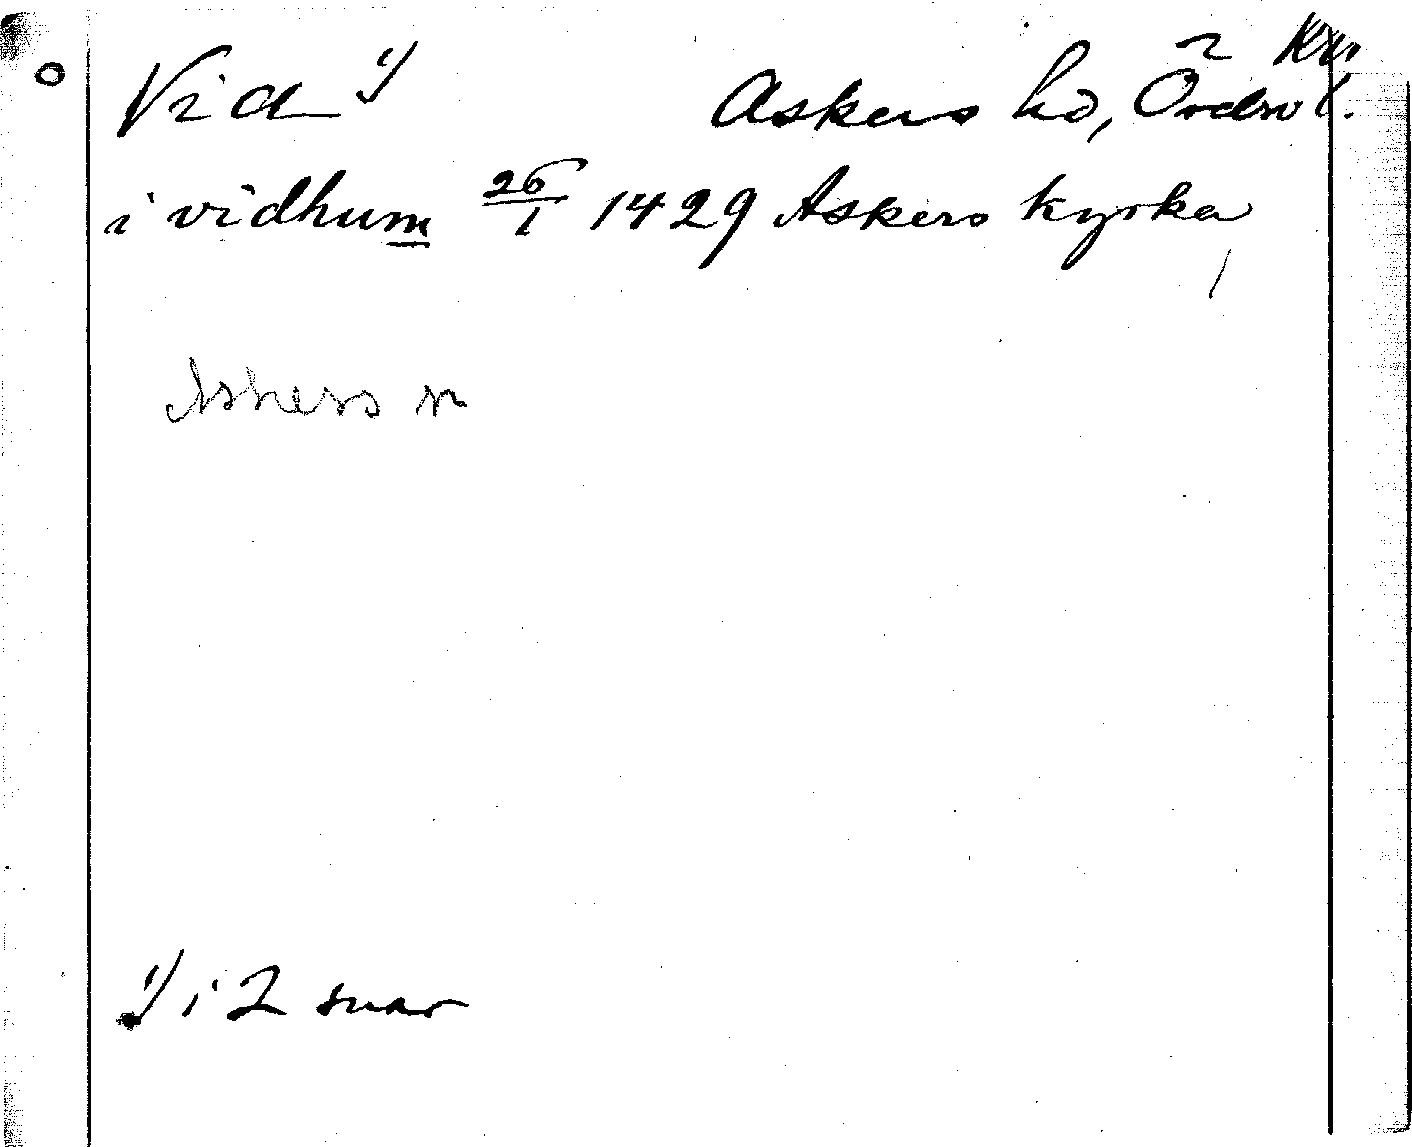 Vid 1)
Askers hd, Örebro l.
i vidhum 26/1 1429 Askers kyrka
Askers sn
1) i 2 snar